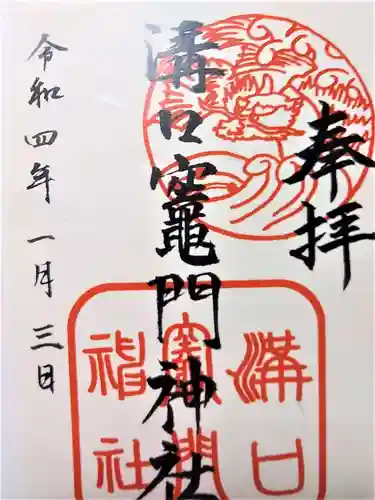 奉拝
溝口竈門神社
令和四年一月三日
溝口
竈門
神社